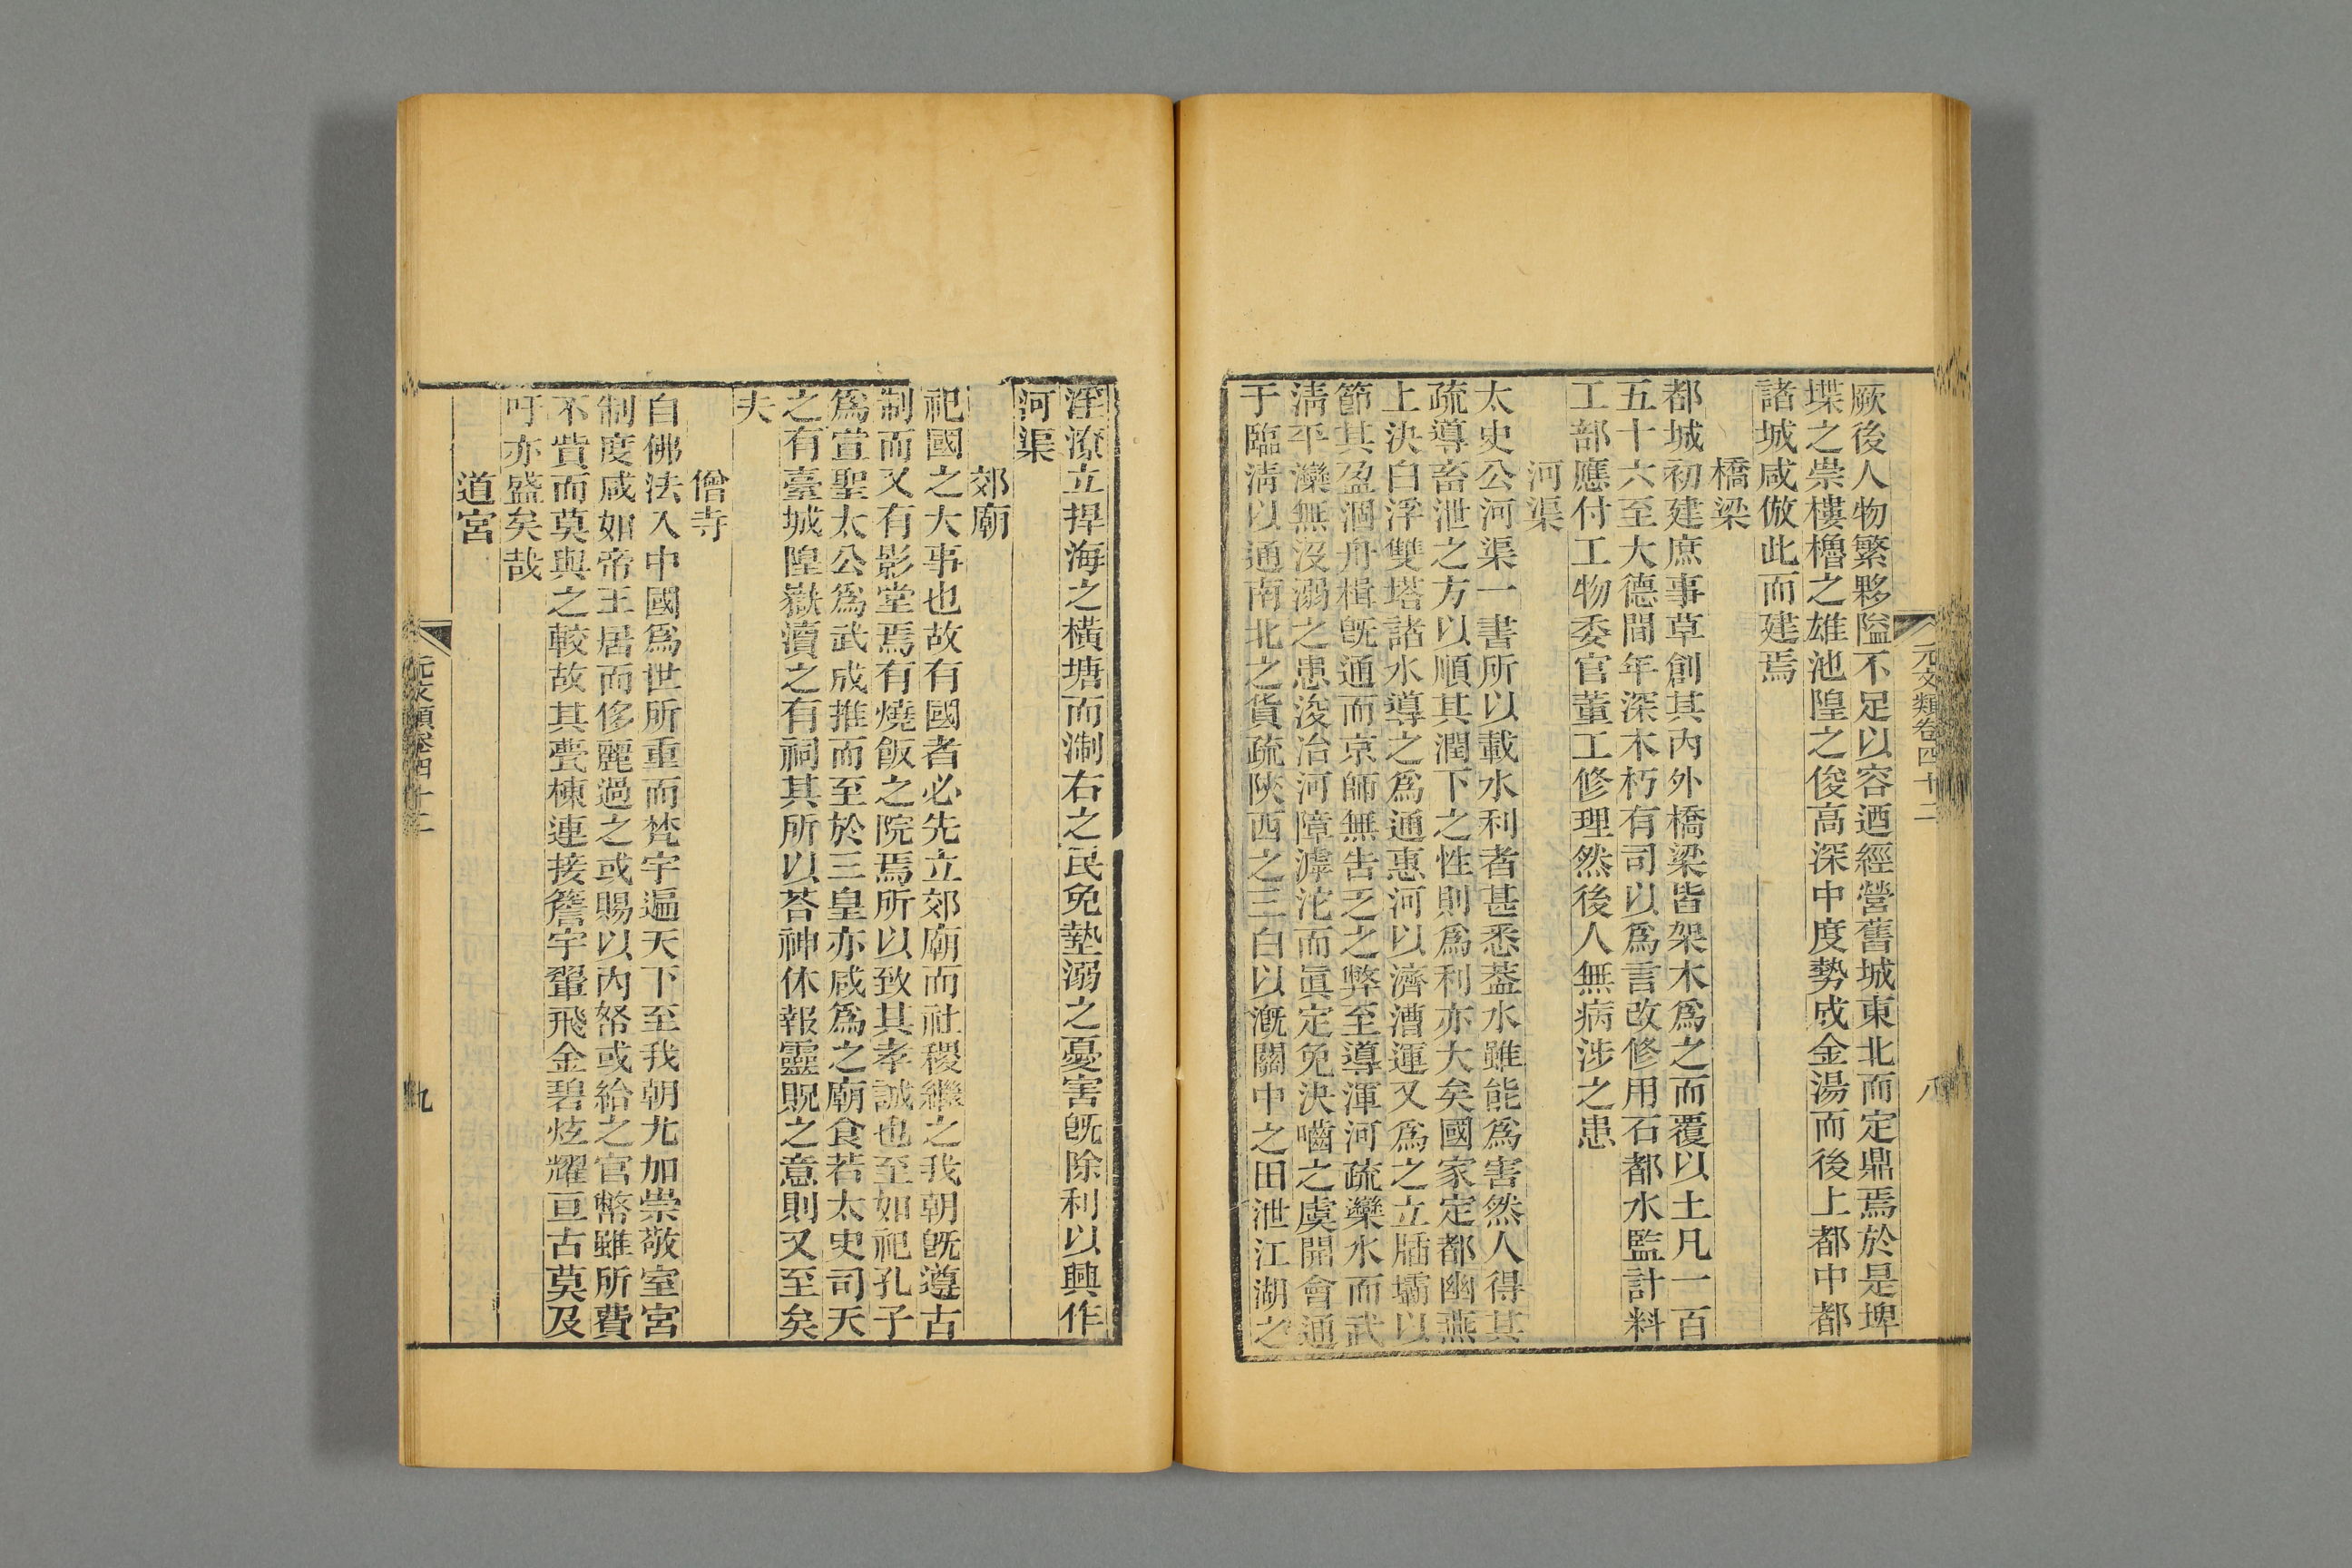 元文類卷四十二
八
厥後人物繁夥隘不足以容迺經營舊城東北而定鼎焉於是埤
堞之崇樓櫓之雄池隍之俊高深中度勢成金湯而後上都中都
諸城咸倣此而建焉
橋梁
都城初建庶事草創其內外橋梁皆架木爲之而覆以土凡一百
五十六至大德間年深木朽有司以爲言改修用石都水監計料
工部應付工物委官董工修理然後人無病涉之患
河渠
太史公河渠一書所以載水利者甚悉葢水雖能爲害然人得其
疏導畜泄之方以順其潤下之性則爲利亦大矣國家定都幽燕
上決白浮雙塔諸水導之爲通惠河以濟漕運又爲之立牐壩以
節其盈涸舟楫旣通而京師無告乏之弊至導渾河疏灤水而武
淸平灤無沒溺之患浚冶河障滹沱而眞定免決嚙之虞開會通
于臨淸以通南北之貨疏陝西之三白以漑關中之田泄江湖之
淫潦立捍海之橫塘而淛右之民免墊溺之憂害旣除利以興作
河渠
郊廟
祀國之大事也故有國者必先立郊廟而社稷繼之我朝旣遵古
制而又有影堂焉有燒飯之院焉所以致其孝誠也至如祀孔子
爲宣聖太公爲武成推而至於三皇亦咸爲之廟食若太史司天
之有臺城隍嶽瀆之有祠其所以荅神休報靈貺之意則又至矣
夫
僧寺
自佛法入中國爲世所重而梵宇遍天下至我朝尤加崇敬室宮
制度咸如帝王居而侈麗過之或賜以內帑或給之官幣雖所費
不貲而莫與之較故其甍棟連接簷宇翬飛金碧炫耀亘古莫及
吁亦盛矣哉
道宮
元文類卷四十二
九